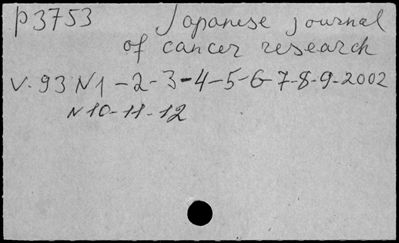 P3753 Japanese journal
of cancer research
V. 93 N1-2-3-4-5-6-7-8-9-2002
N10-11-12